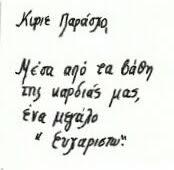 Κύριε Παράσχο,
Μέσα από τα βάθη
της καρδιάς μας,
ένα μεγάλο
"Ευχαριστώ".